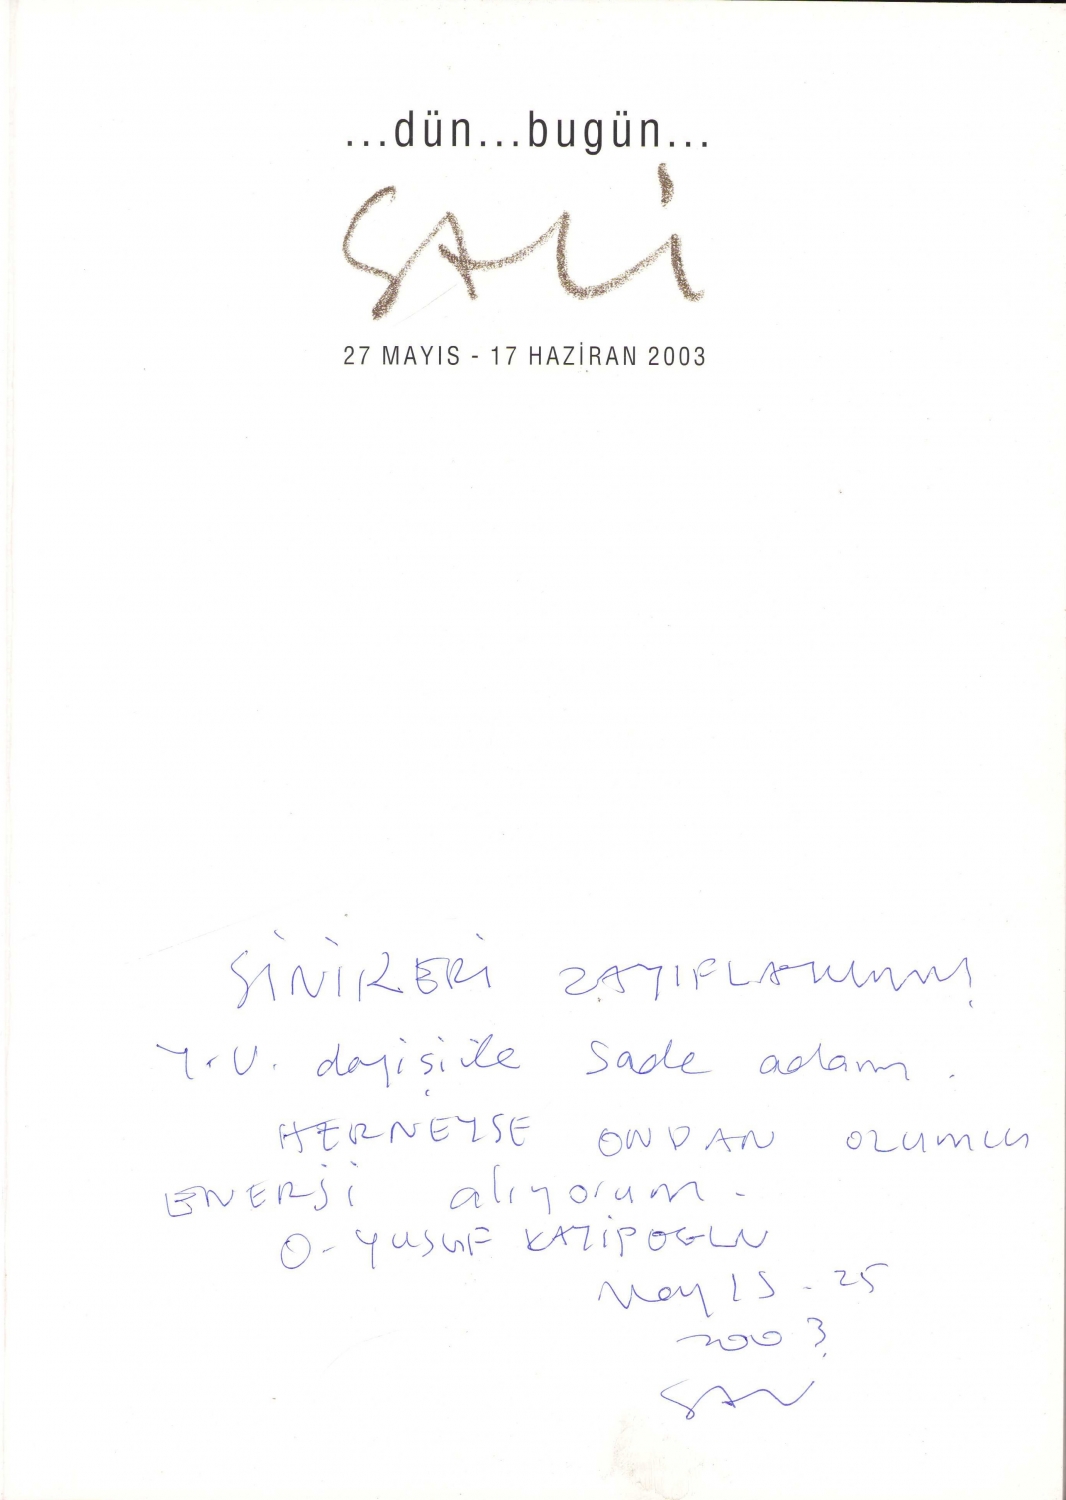 ...dün...bugün...
SALİ
27 MAYIS - 17 HAZİRAN 2003
SİNİRLERİ
Y.U. deyişi ile Sade adam.
HERNEYSE ONDAN OLUMLU
ENERJİ alıyorum.
O- YUSUF
May 1S - 25
2003
SALİ